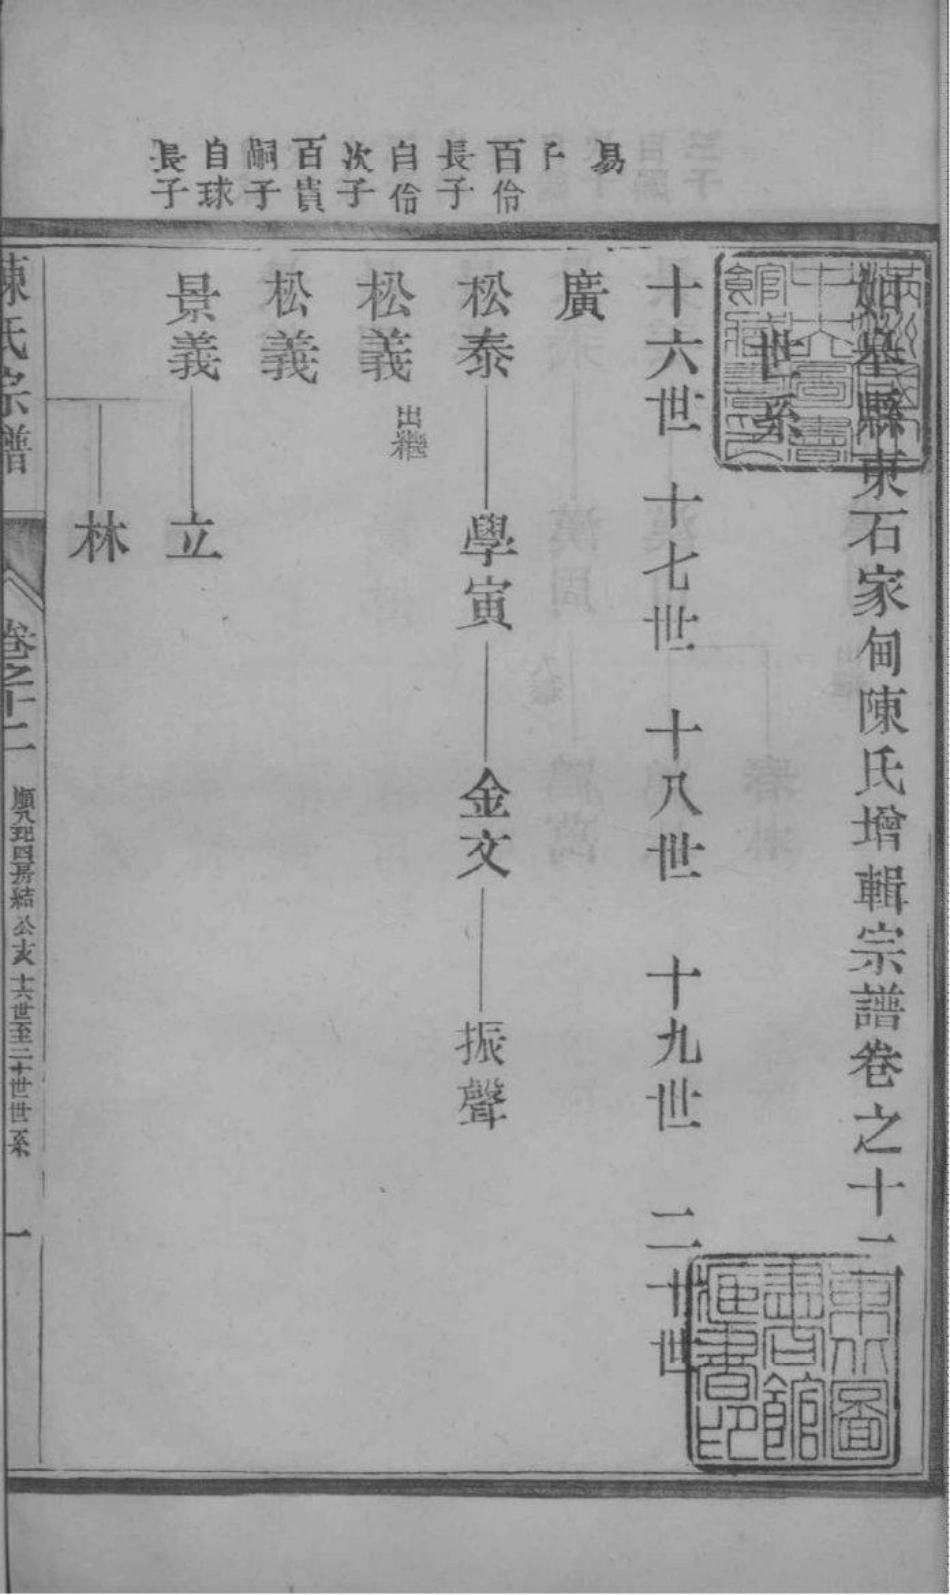 始基縣東石家甸陳氏增輯宗譜卷之十二
世系
十六世 十七世 十八世 十九世 二十世
易
子
廣
百伶
長子
松泰 學寅 金文 振聲
白伶
次子
松義 出繼
百貴
嗣子
松義
自球
長子
景義 立
林
陳氏宗譜 卷之十二 十六世至二十世世系 一
東北圖
書館
藏書印